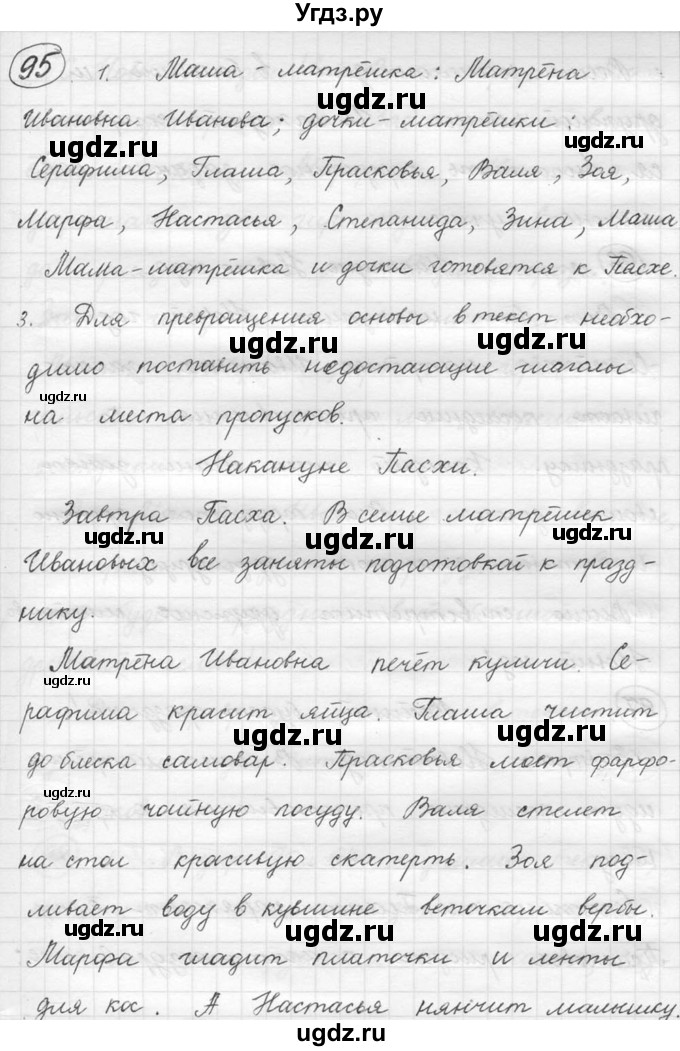 Угдз.ру
95 1. Маша - матрёшка: Матрёна
Ивановна Иванова; дочки - матрёшки:
Серафима, Глаша, Прасковья, Валя, Зоя,
Марфа, Настасья, Степанида, Зина, Маша
Мама - матрёшка и дочки готовятся к Пасхе.
3. Для превращения основы в текст необхо-
димо поставить недостающие глаголы
на места пропусков.
Накануне Пасхи.
Завтра Пасха. В семье матрёшек
Ивановых все заняты подготовкой к празд-
нику.
Матрёна Ивановна печёт куличи. Се-
рафима красит яйца. Глаша чистит
до блеска самовар. Прасковья моет фарфо-
ровую чайную посуду. Валя стелет
на стол красивую скатерть. Зоя под-
ливает воду в кувшине веточкам вербы.
Марфа гладит платочки и ленты
для кос. А Настасья нянчит малышку.
ugdz.ru